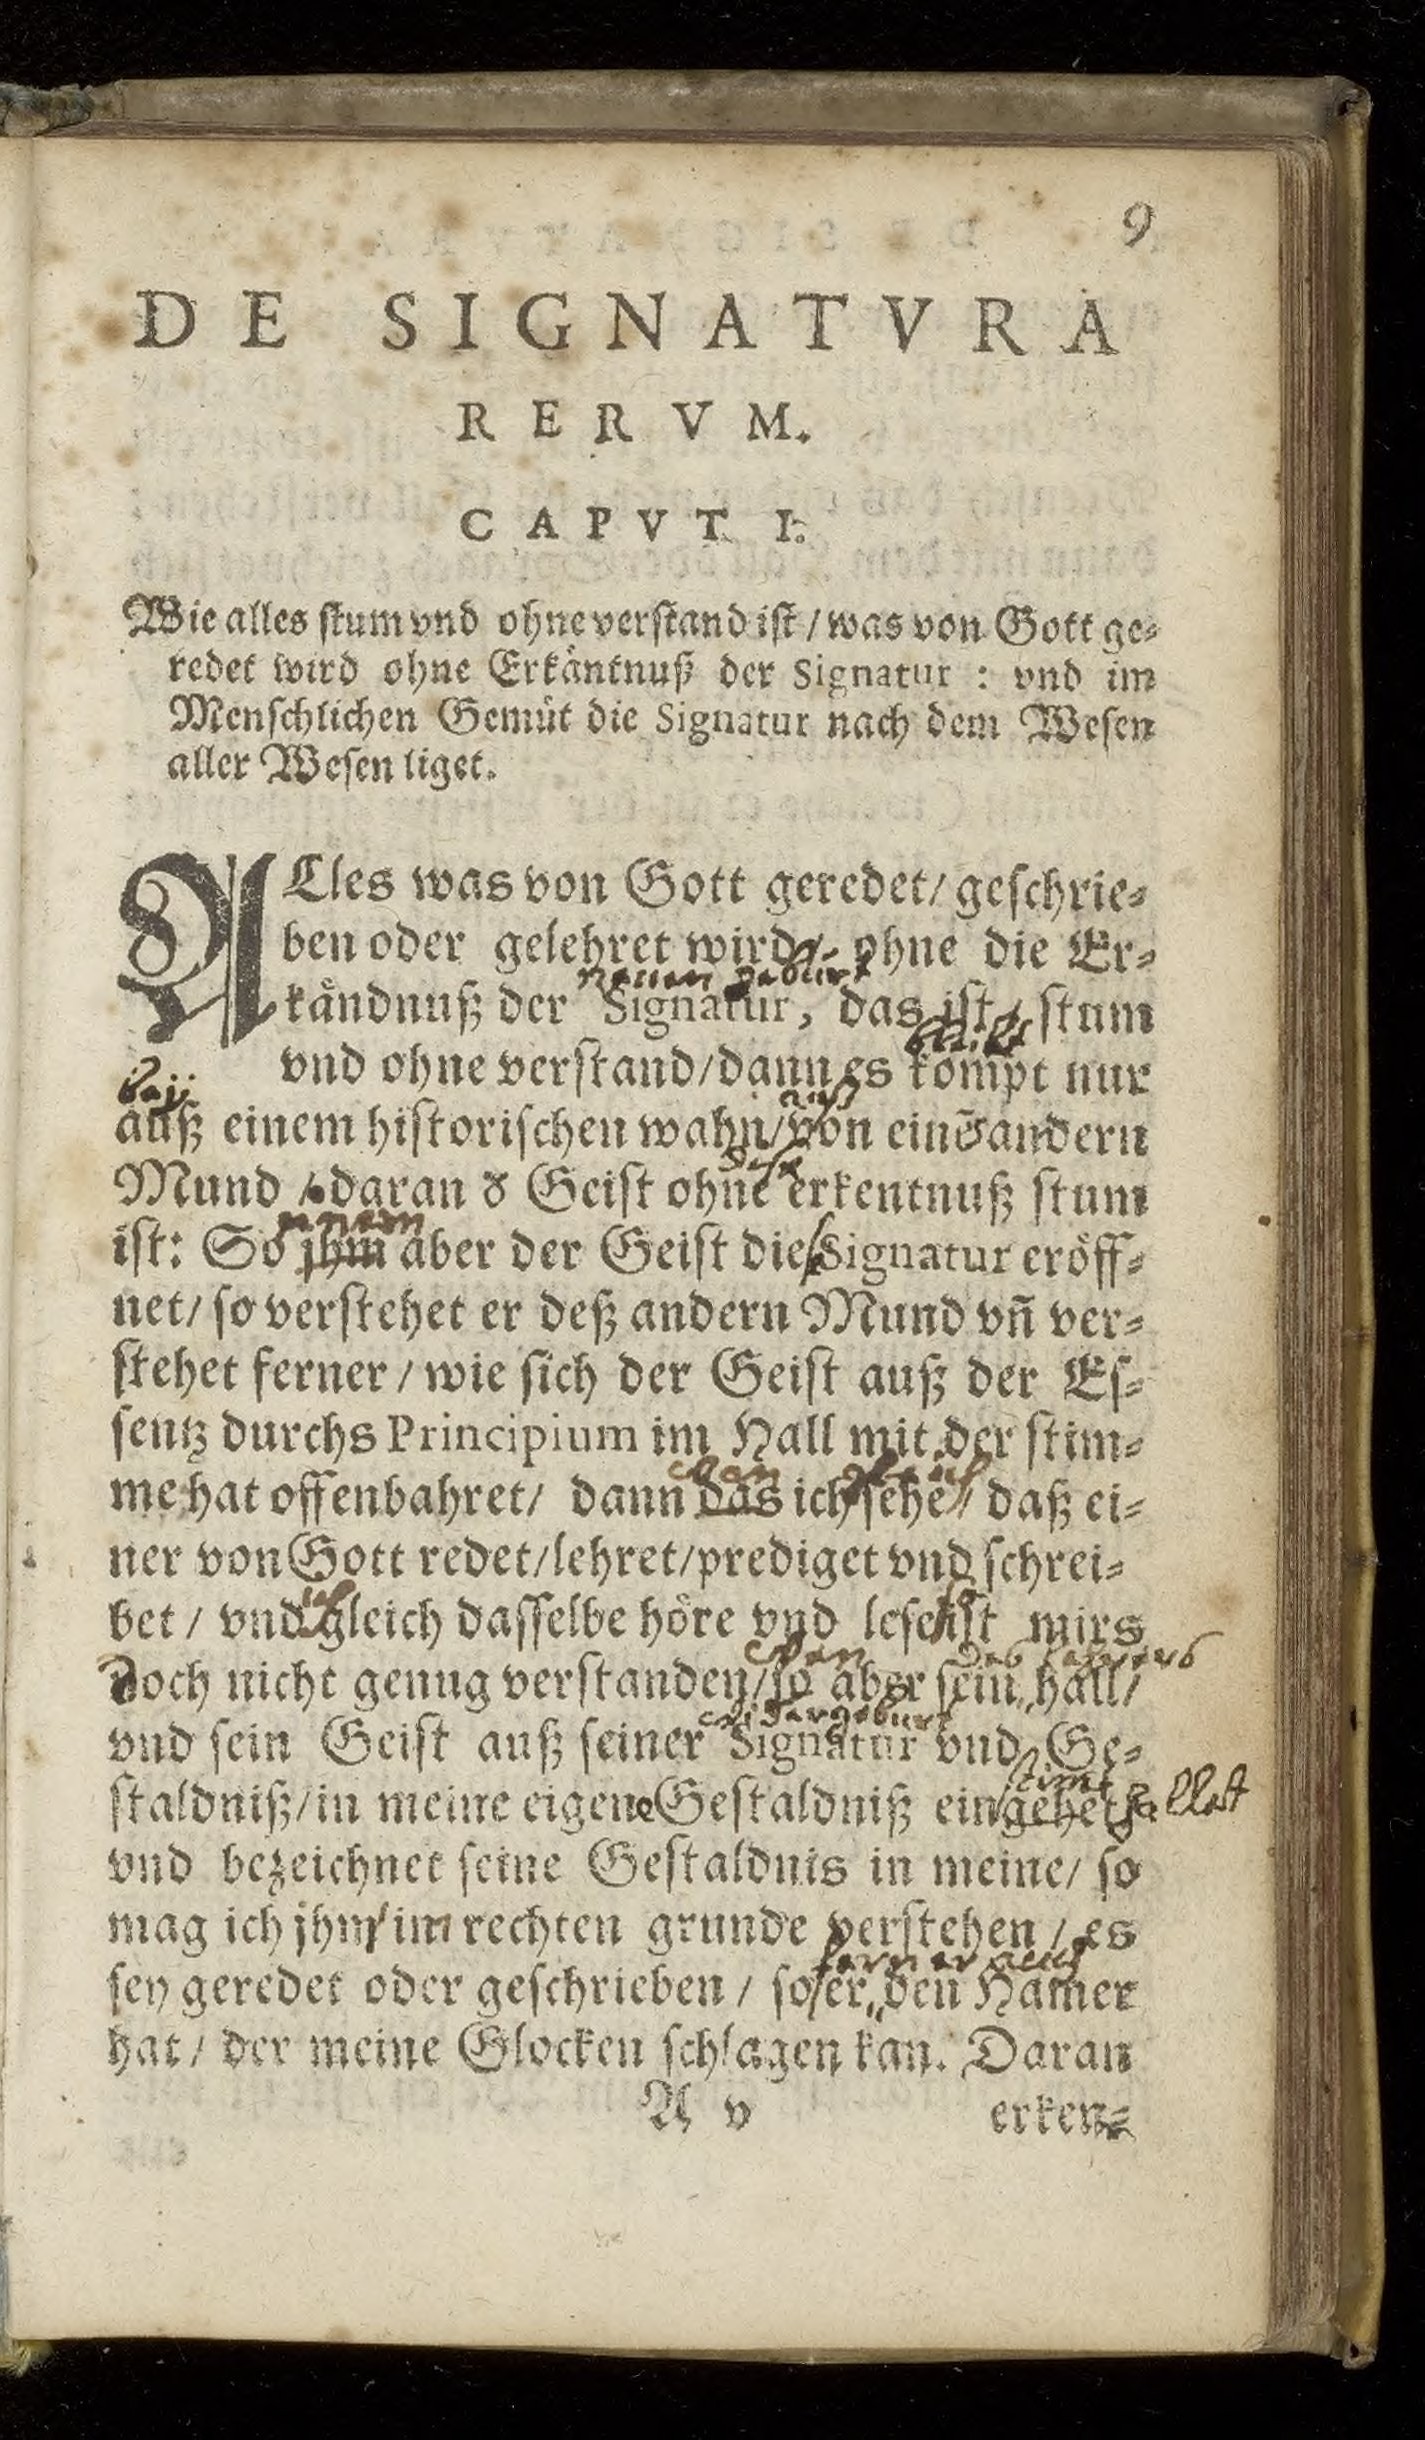 9
DE SIGNATVRA
RERVM.
CAPVT I.
Wie alles stum vnd ohne verstand ist / was von Gott ge-
redet wird ohne Erkäntnuß der Signatur : vnd im
Menschlichen Gemüt die Signatur nach dem Wesen
aller Wesen liget.
ALles was von Gott geredet / geschrie-
ben oder gelehret wird / ohne die Er-
neuen geburt
kändnuß der Signatur, das ist / stum
bleibt
vnd ohne verstand / dann es kompt nur
bey
auß
auß einem historischen wahn / von einẽ andern
Mund / daran ð Geist ohne erkentnuß stum
einem
ist: So jhm aber der Geist die Signatur eröff-
net / so verstehet er deß andern Mund vñ ver-
stehet ferner / wie sich der Geist auß der Es-
sentz durchs Principium im Hall mit der stim-
me hat offenbahret / dann das ich sehe / daß ei-
wen
ner von Gott redet / lehret / prediget vnd schrei-
ich
bet / vnd gleich dasselbe höre vnd lese ist mirs
so
wen
des lehrers
doch nicht genug verstanden / so aber sein hall /
widergeburt
vnd sein Geist auß seiner Signatur vnd Ge-
staldniß / in meine eigene Gestaldniß eingehet
stimt
vnd bezeichnet seine Gestaldnis in meine / so
mag ich jhn im rechten grunde verstehen / es
ferner auch
sey geredet oder geschrieben / so er den Hamer
hat / der meine Glocken schlagen kan. Daran
A v
erken-